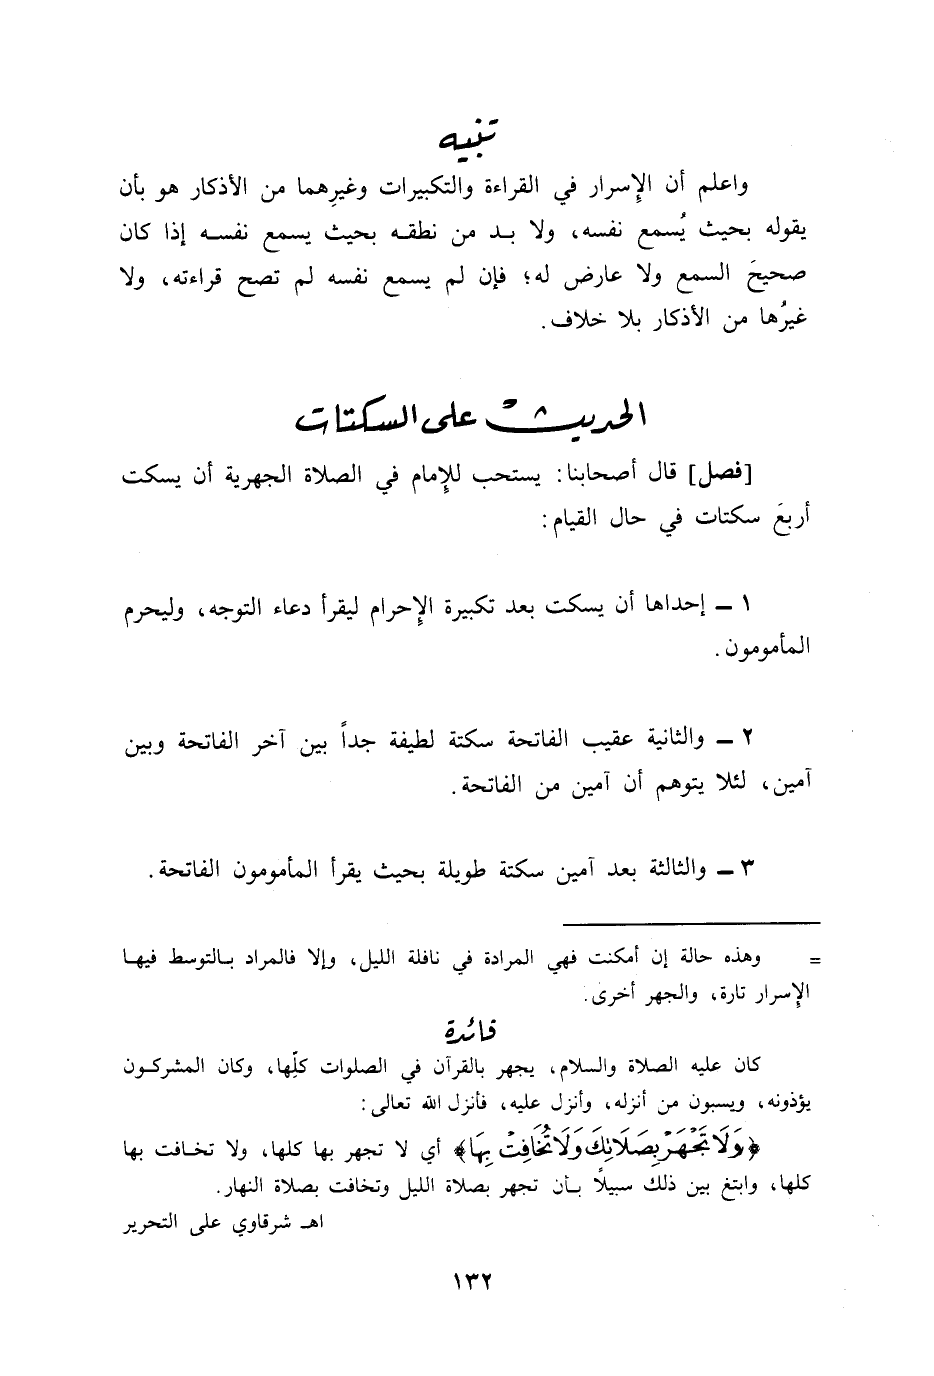 تنبيه
واعلم أن الإسرار في القراءة والتكبيرات وغيرِهما من الأذكار هو بأن
يقوله بحيث يُسمع نفسه، ولا بد من نطقه بحيث يسمع نفسه إذا كان
صحيحَ السمع ولا عارض له؛ فإن لم يسمع نفسه لم تصح قراءته، ولا
غيرُها من الأذكار بلا خلاف.
الحديث على السكتات
[فصل] قال أصحابنا: يستحب للإمام في الصلاة الجهرية أن يسكت
أربعَ سكتات في حال القيام:
١ ـ إحداها أن يسكت بعد تكبيرة الإحرام ليقرأ دعاء التوجه، وليحرم
المأمومون.
٢ ـ والثانية عقيب الفاتحة سكتة لطيفة جداً بين آخر الفاتحة وبين
آمين، لئلا يتوهم أن آمين من الفاتحة.
٣ ـ والثالثة بعد آمين سكتة طويلة بحيث يقرأ المأمومون الفاتحة.
= وهذه حالة إن أمكنت فهي المرادة في نافلة الليل، وإلا فالمراد بالتوسط فيها
الإسرار تارة، والجهر أخرى.
فائدة
كان عليه الصلاة والسلام، يجهر بالقرآن في الصلوات كلِّها، وكان المشركون
يؤذونه، ويسبون من أنزله، وأنزل عليه، فأنزل الله تعالى:
﴿وَلَا تَجْهَرْ بِصَلَاتِكَ وَلَا تُخَافِتْ بِهَا﴾ أي لا تجهر بها كلها، ولا تخافت بها
كلها، وابتغ بين ذلك سبيلاً بأن تجهر بصلاة الليل وتخافت بصلاة النهار.
اهـ شرقاوي على التحرير
١٣٢